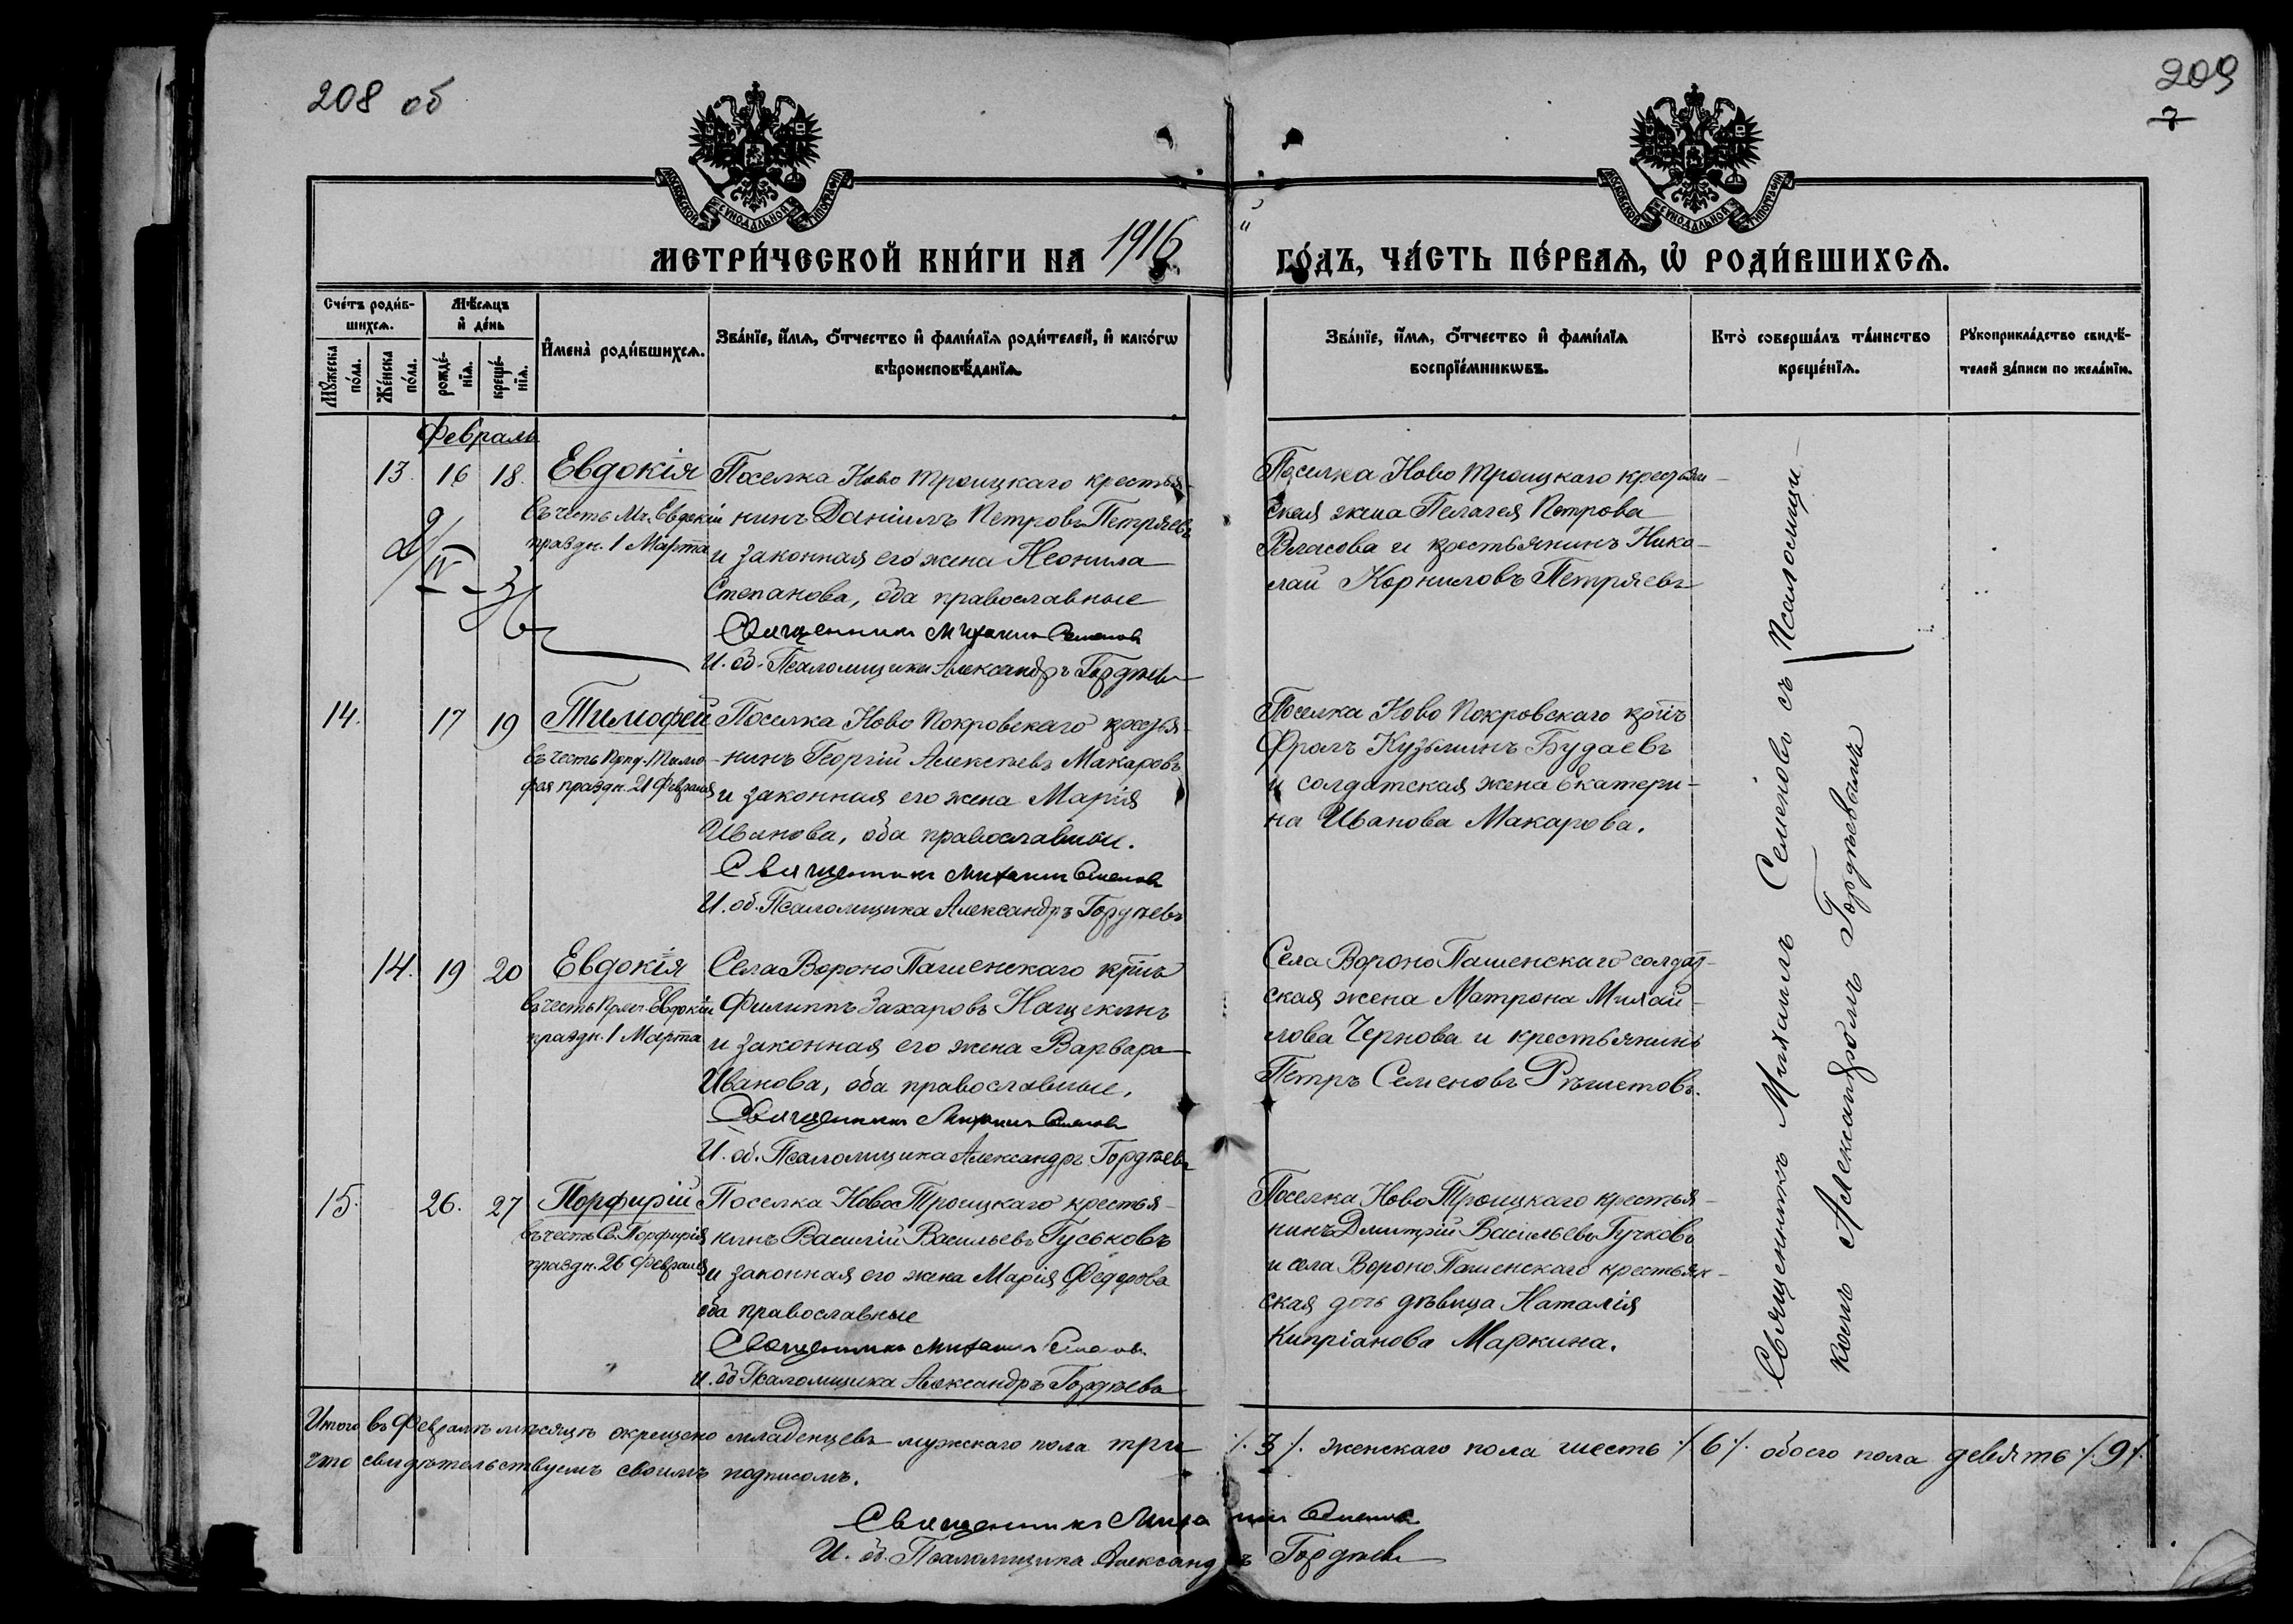 208 об
209
7
МОСКОВСКОЙ СѴНОДАЛЬНОЙ ТИПОГРАФІИ
МОСКОВСКОЙ СѴНОДАЛЬНОЙ ТИПОГРАФІИ
МЕТРИ́ЧЕСКОЙ КНИ́ГИ НА 1916 ГО́ДЪ, ЧА́СТЬ ПЕ́РВАѦ, Ѡ҆ РОДИ́ВШИХСѦ.
Сче́тъ роди́в-
шихсѧ.
Мѣ́сѧцъ
и҆ де́нь
Мꙋ́жеска
по́ла.
Же́нска
по́ла.
рожде́-
нїѧ.
креще́-
нїѧ.
И҆мена̀ роди́вшихсѧ.
Зва́нїе, и҆́мѧ, ѻ҆́тчество и҆ фами́лїѧ роди́телей, и҆ како́гѡ
вѣроисповѣ́данїѧ.
Зва́нїе, и҆́мѧ, ѻ҆́тчество и҆ фами́лїѧ
воспрїе́мникѡвъ.
Кто̀ соверша́лъ та́инство
креще́нїѧ.
Рꙋкоприкла́дство свидѣ́-
телей за́писи по жела́нїю.
Февраль
13. 16 18. Евдокія
въ честь Мч. Евдокіи
праздн. 1 Марта
Поселка Ново Троицкаго крестья-
нинъ Даніилъ Петровъ Петряевъ
и законная его жена Неонила
Степанова, оба православные
Священникъ Михаилъ Семеновъ
И. об. Псаломщика Александръ Гордѣевъ
Поселка Ново Троицкаго крестьян-
ская жена Пелагея Петрова
Власова и крестьянинъ Нико-
лай Корниловъ Петряевъ
14. 17 19 Тимофей
въ честь Прпд. Тимо-
фея праздн. 21 Февраля
Поселка Ново Покровскаго крестья-
нинъ Георгій Алексѣевъ Макаровъ
и законная его жена Марія
Иванова, оба православные.
Священникъ Михаилъ Семеновъ
И. об. Псаломщика Александръ Гордѣевъ
Поселка Ново Покровскаго кр̃нъ
Фролъ Кузьминъ Будаевъ
и солдатская жена Екатери-
на Иванова Макарова.
14. 19 20 Евдокія
въ честь Прмч. Евдокіи
праздн. 1 Марта
Села Вороно Пашенскаго кр̃нъ
Филиппъ Захаровъ Нащекинъ
и законная его жена Варвара
Иванова, оба православные.
Священникъ Михаилъ Семеновъ
И. об. Псаломщика Александръ Гордѣевъ
Села Вороно Пашенскаго солдат-
ская жена Матрона Михай-
лова Чернова и крестьянинъ
Петръ Семеновъ Рѣшетовъ.
15. 26. 27 Порфирій
въ честь Св. Порфирія
праздн. 26 Февраля
Поселка Ново Троицкаго крестья-
нинъ Василій Васильевъ Гуськовъ
и законная его жена Марія Федорова
оба православные
Священникъ Михаилъ Семеновъ
И. об. Псаломщика Александръ Гордѣевъ
Поселка Ново Троицкаго крестья-
нинъ Дмитрій Васильевъ Гучковъ
и села Вороно Пашенскаго крестьян-
ская дочь дѣвица Наталія
Кипріанова Маркина.
Священникъ Михаилъ Семеновъ съ Псаломщи-
комъ Александромъ Гордѣевымъ
Итого въ Февралѣ мѣсяцѣ окрещено младенцевъ мужскаго пола три ./. 3 /. женскаго пола шесть ./. 6 /. обоего пола девять ./. 9 /.
что свидѣтельствуемъ своимъ подписомъ.
Священникъ Михаилъ Семеновъ
И. об. Псаломщика Александръ Гордѣевъ